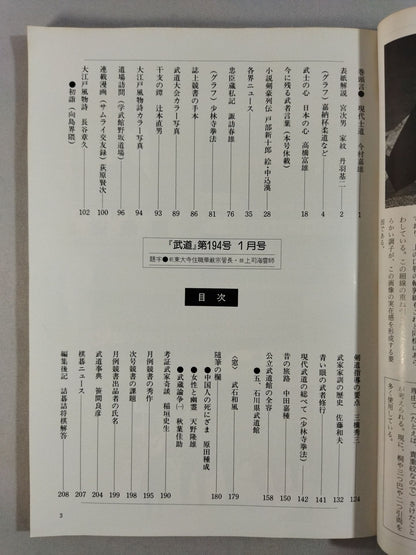 巻頭言● 現代士道 今村嘉雄 1
表紙解説 宮次男 家紋 丹羽基二 2
〈グラフ〉嘉納杯柔道など 4
武士の心 日本の心 高橋富雄 18
今に残る武者言葉（本号休載）
小説剣豪列伝 戸部新十郎 絵・中込漢 28
各界ニュース 35
忠臣蔵私記 諏訪春雄 76
〈グラフ〉少林寺拳法 81
誌上競書の手本 86
武道大会カラー写真 89
干支の譚 辻本直男 93
大江戸風物詩カラー写真 94
道場訪問（学武館野坂道場） 96
連載漫画（サムライ交友録）荻原賢次 100
大江戸風物詩 長谷章久 102
●初詣（向島界隈）
『武道』第194号 1月号
題字●前東大寺住職華厳宗管長・故上司海雲師
目次
剣道指導の要点 三橋秀三 124
武家家訓の歴史 佐藤和夫 132
青い眼の武者修行 141
現代武道の総べて（少林寺拳法） 142
昔の旅路 中田嘉種 150
公立武道館の全容 158
●五、石川県武道館
〈窓〉 武石和風 179
随筆の欄 180
●中国人の死にざま 原田種成
●女性と幽霊 天野隆雄
●武蔵論争(一) 秋葉佳助
考証武家奇談 稲垣史生 190
月例競書の秀作 195
次号競書の課題 198
月例競書出品者の氏名 199
武道事典 笹間良彦 204
棋碁ニュース 207
編集後記 詰碁詰将棋解答 208
3